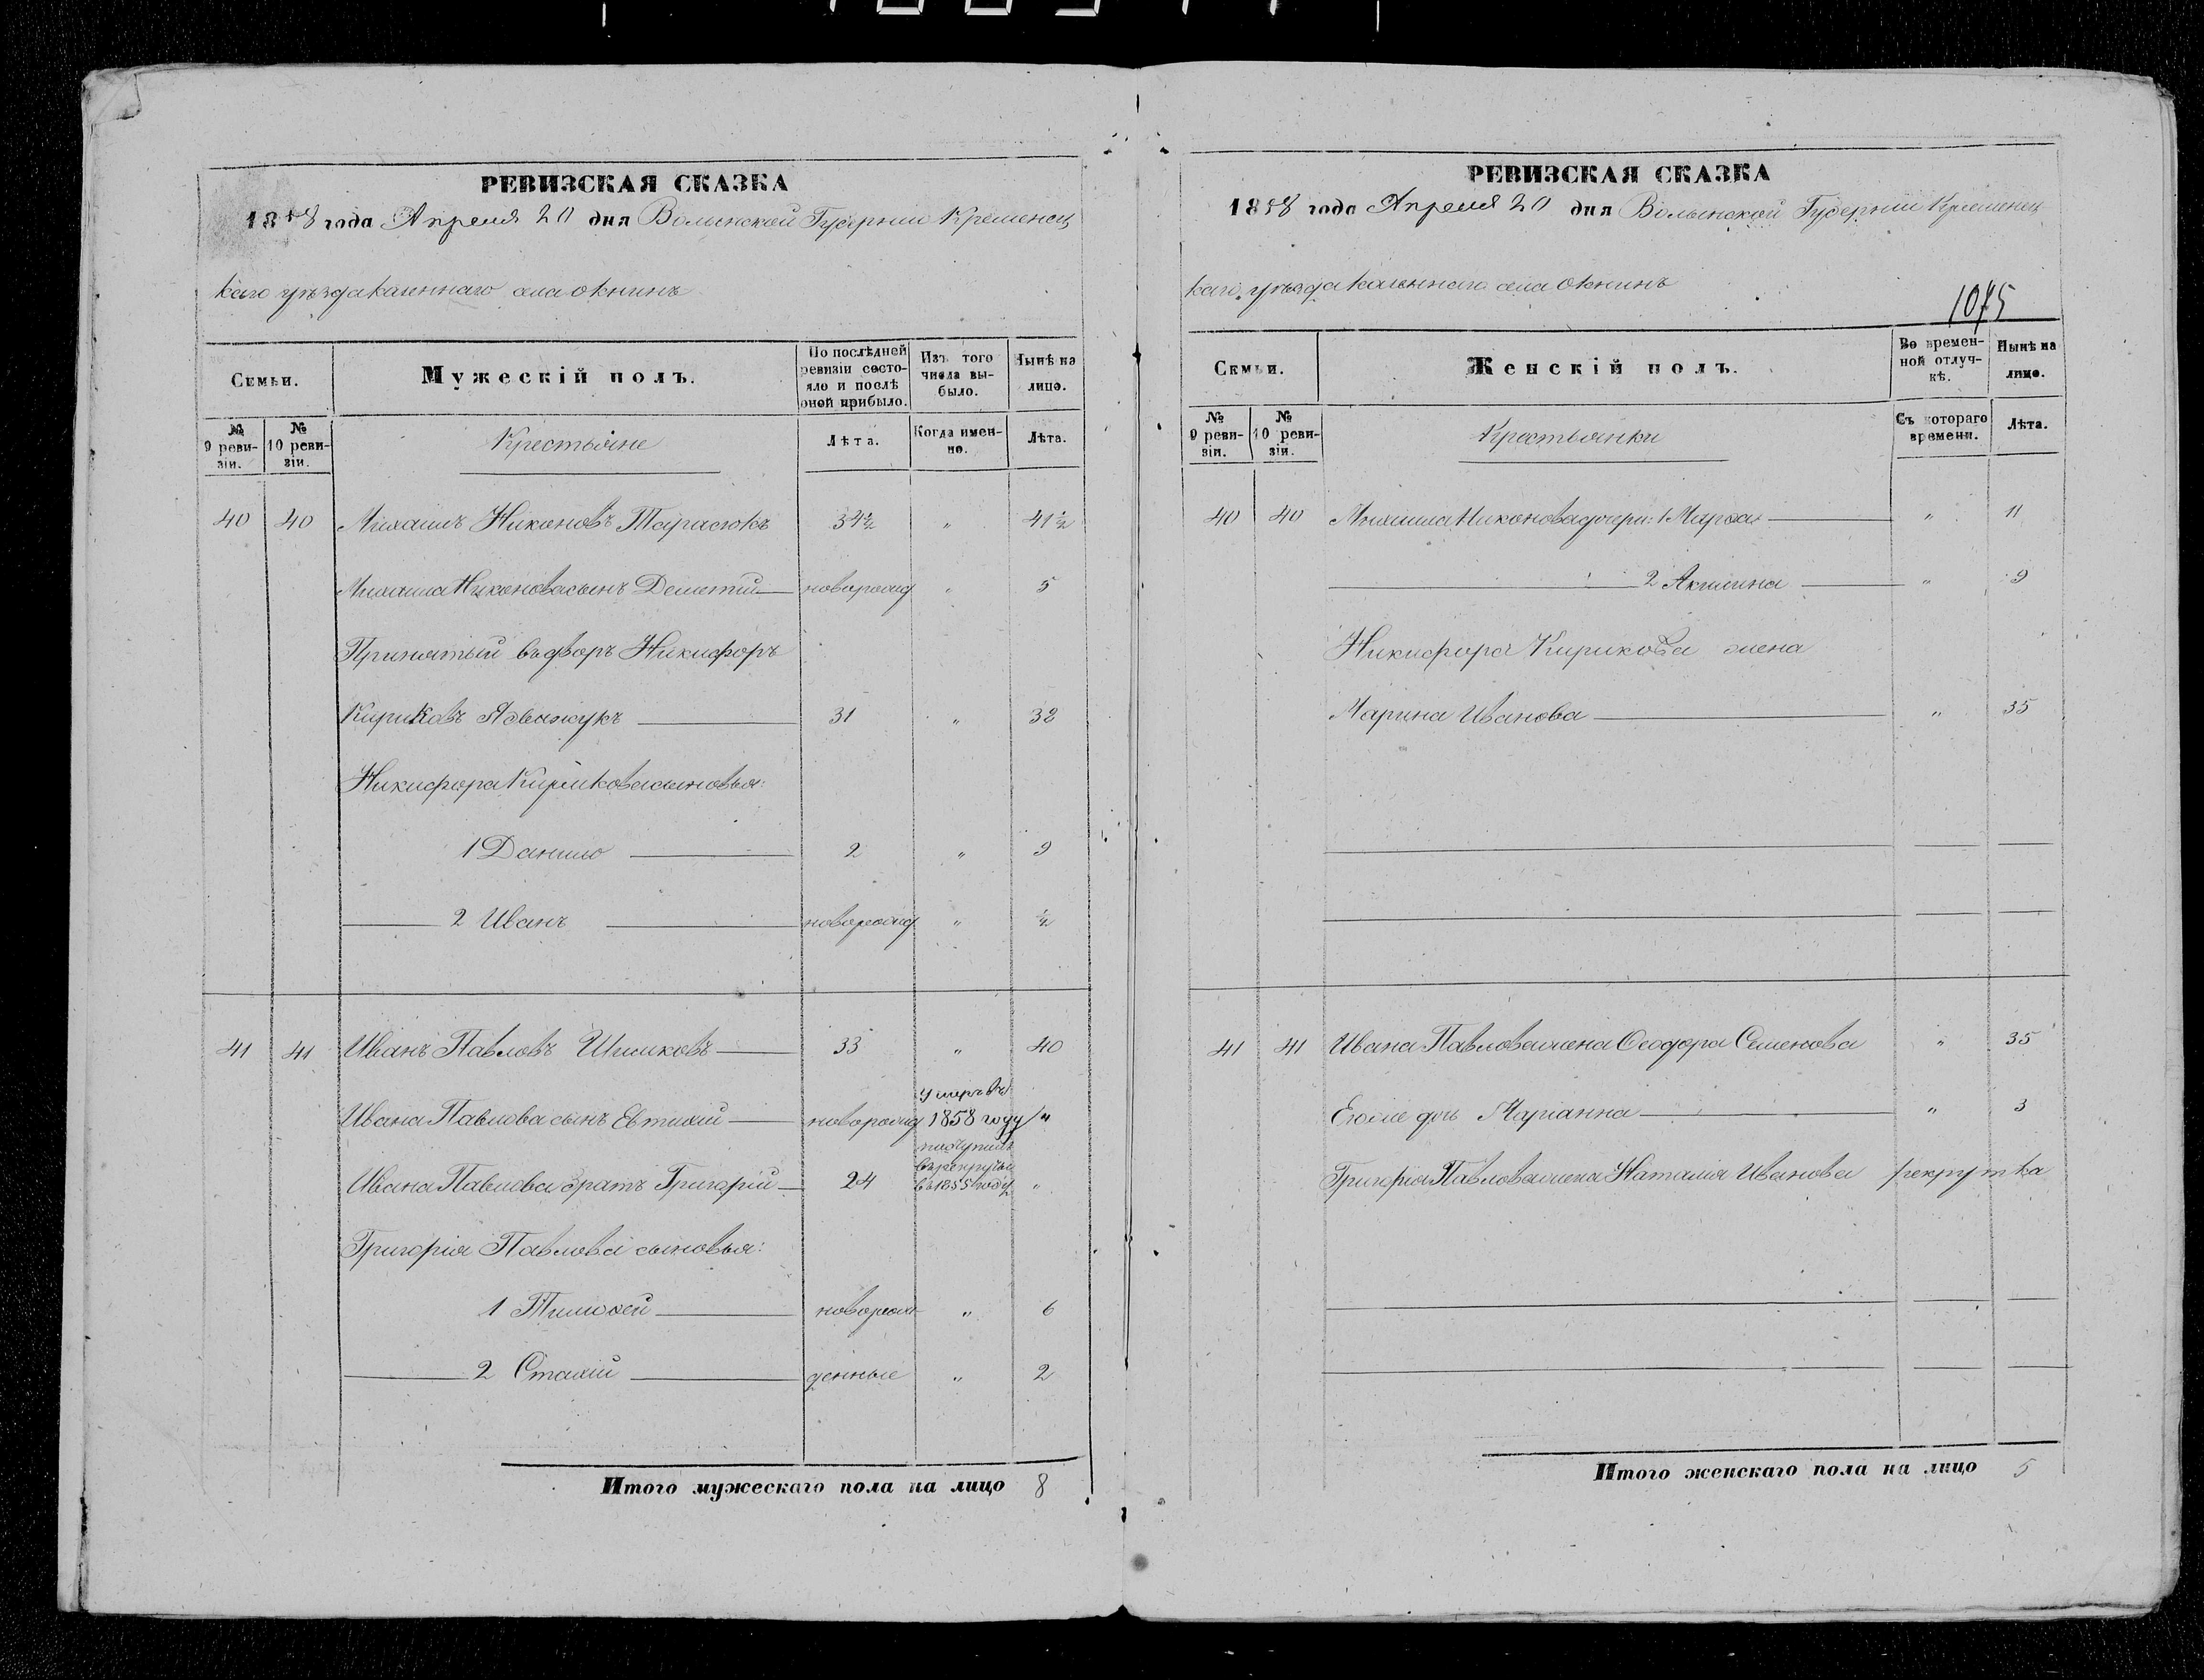 РЕВИЗСКАЯ СКАЗКА
1858 года Апреля 20 дня Волынской Губернии Кременец
каго уѣзда казеннаго села Окнинъ
Семьи.
Мужескій полъ.
По послѣдней ревизіи состояло и послѣ оной прибыло.
Изъ того числа выбыло.
Нынѣ на лицо.
№ 9 ревизіи.
№ 10 ревизіи.
Крестьяне
Лѣта.
Когда именно.
Лѣта.
40 40 Михаилъ Никоновъ Тарасюкъ 34½ " 41½
Михаила Никонова сынъ Деметій новорожд " 5
Принятый въ дворъ Никифоръ
Кириковъ 31 " 38
Никифора Кирикова сыновья:
1 Данило 2 " 9
2 Иванъ новорожд " ½
41 41 Иванъ Павловъ 33 " 40
Ивана Павлова сынъ Евтихій новорожд умеръ въ 1858 году "
Ивана Павлова братъ Григорій 24 поступилъ въ рекруты въ 1855 году "
Григорія Павлова сыновья:
1 Тимофей новорож " 6
2 Стахій денные " 2
Итого мужескаго пола на лицо 8
РЕВИЗСКАЯ СКАЗКА
1858 года Апреля 20 дня Волынской Губерніи Кременец
каго уѣзда казеннаго села Окнинъ
1075
Семьи.
Женскій полъ.
Во временной отлучкѣ.
Нынѣ на лицо.
№ 9 ревизіи.
№ 10 ревизіи.
Крестьянки
Съ котораго времени.
Лѣта.
40 40 Михаила Никонова дочери: 1 Марфа " 11
2 Акилина " 9
Никифора Кирикова жена
Марина Иванова " 35
41 41 Ивана Павлова жена Феодора Семенова " 35
Его же дчь Маріанна " 3
Григорія Павлова жена Наталія Иванова рекрутка
Итого женскаго пола на лицо 5